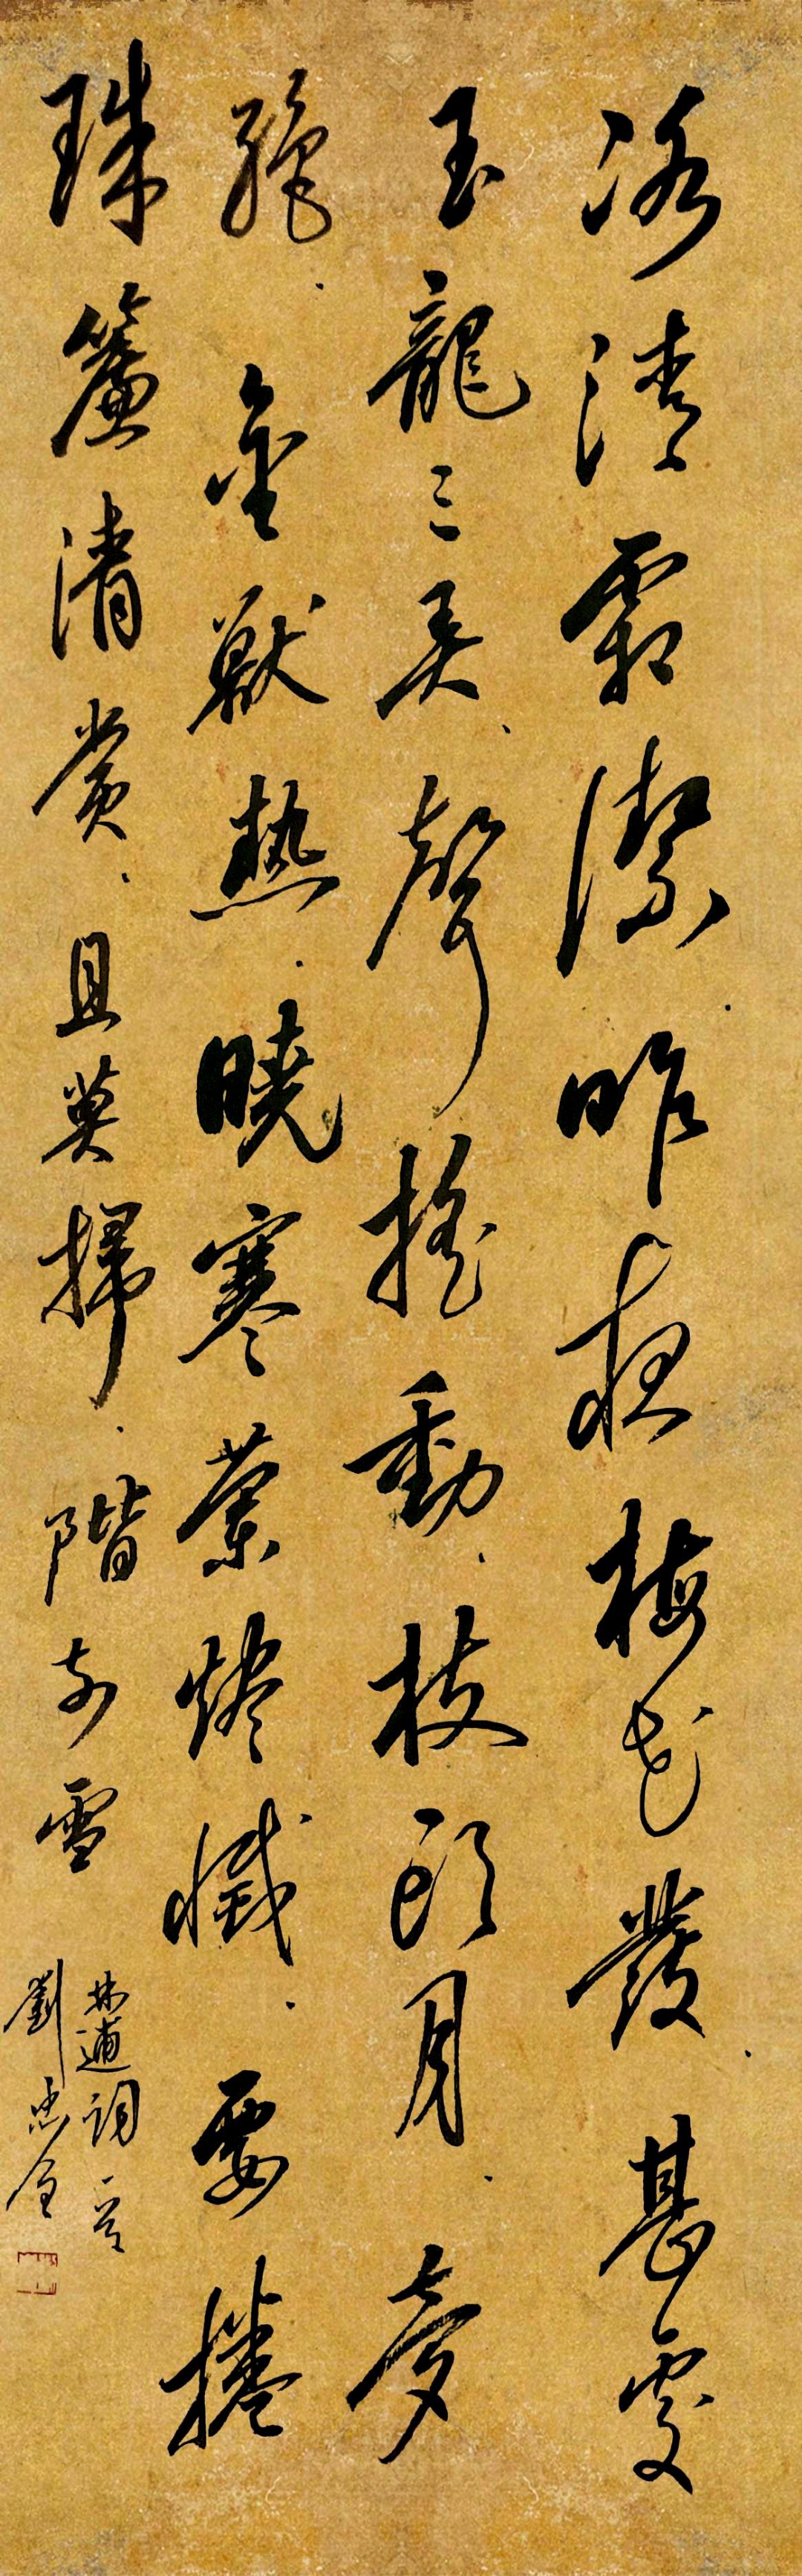 冰清霜潔昨夜梅花發甚處
玉龍三弄聲搖動枝頭月夢
絕金獸熱曉寒蘭燼滅要捲
珠簾清賞且莫掃階前雪
林逋詞一首
劉忠全